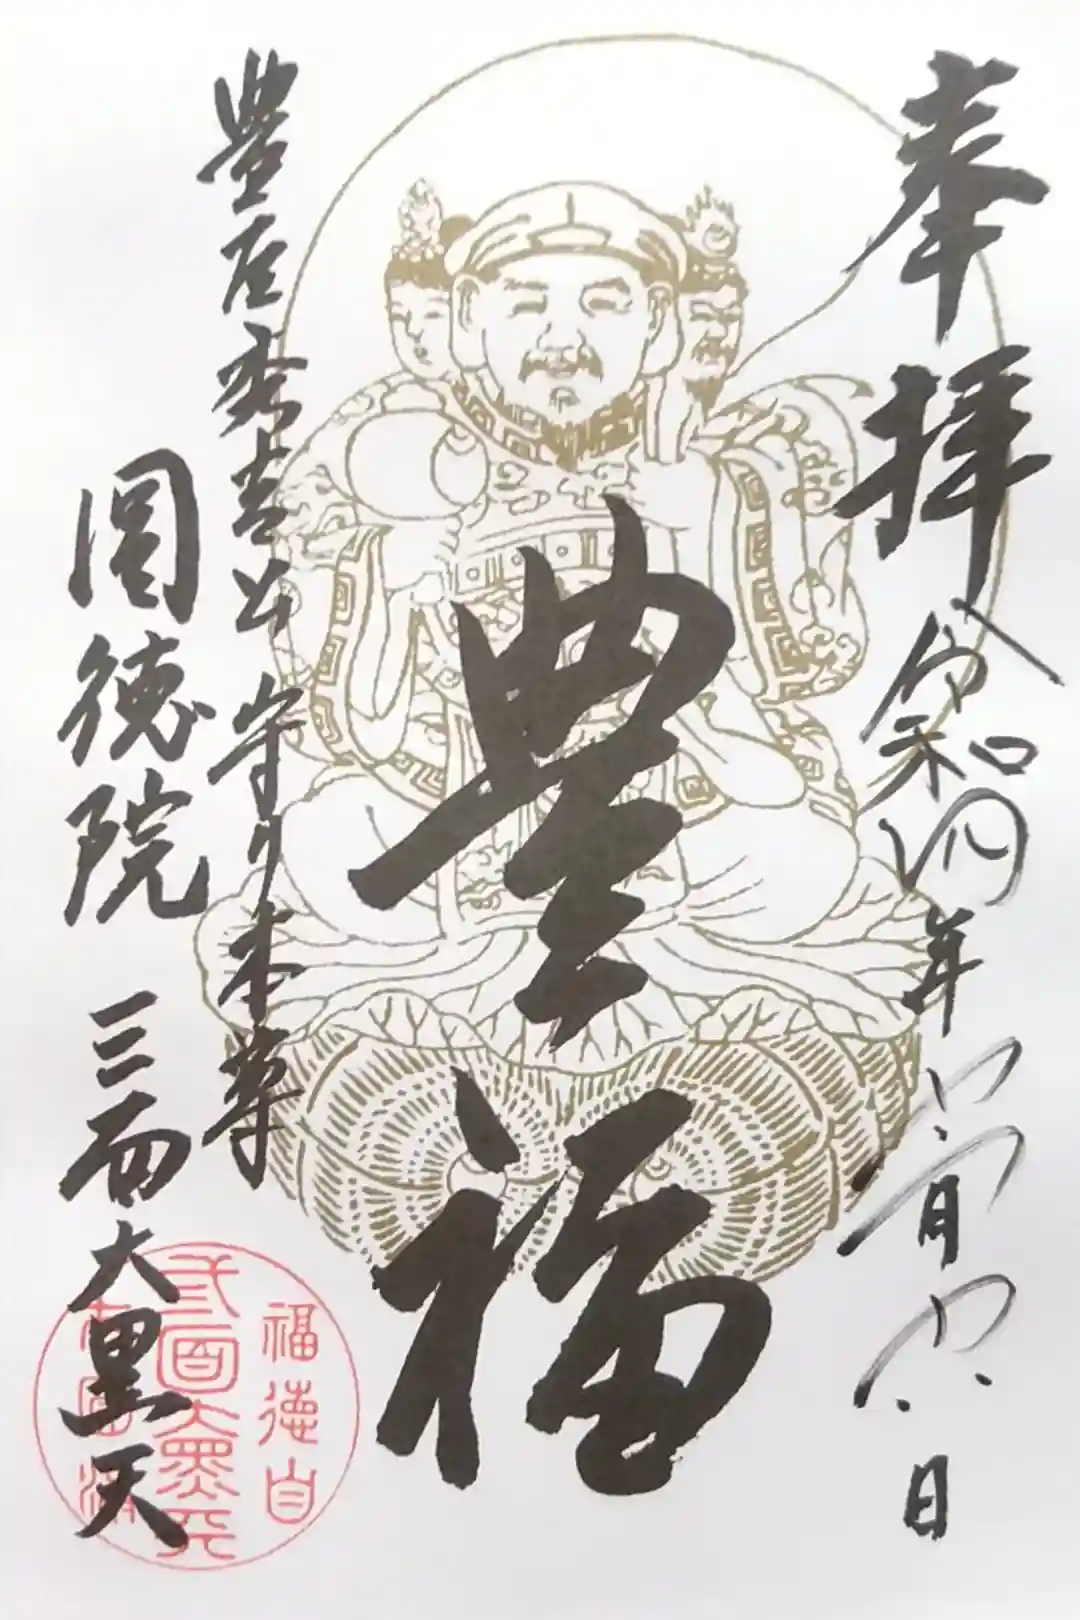 奉拝
令和四年 月 日
豊福
豊臣秀吉公 守り本尊
圓徳院 三面大黒天
福徳自
三面大黒天